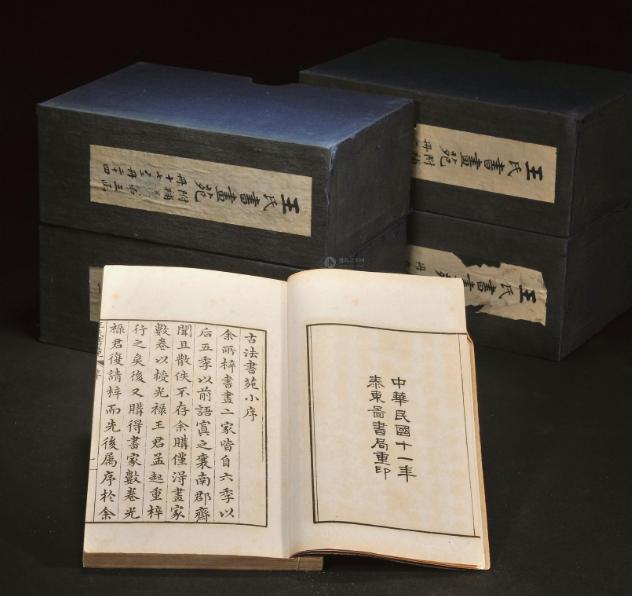 王氏書畫苑
附補
王氏書畫苑
附補
王氏書
中華民國十一年
泰東圖書局重印
古法書苑小序
余所梓書畫二家皆自六季以
后五季以前語寘之襄南郡齋
聞且散佚不存余購僅得畫家
數卷以授光祿王君孟起重梓
行之矣後又購得書家數卷光
祿君復請梓而先後属序於余